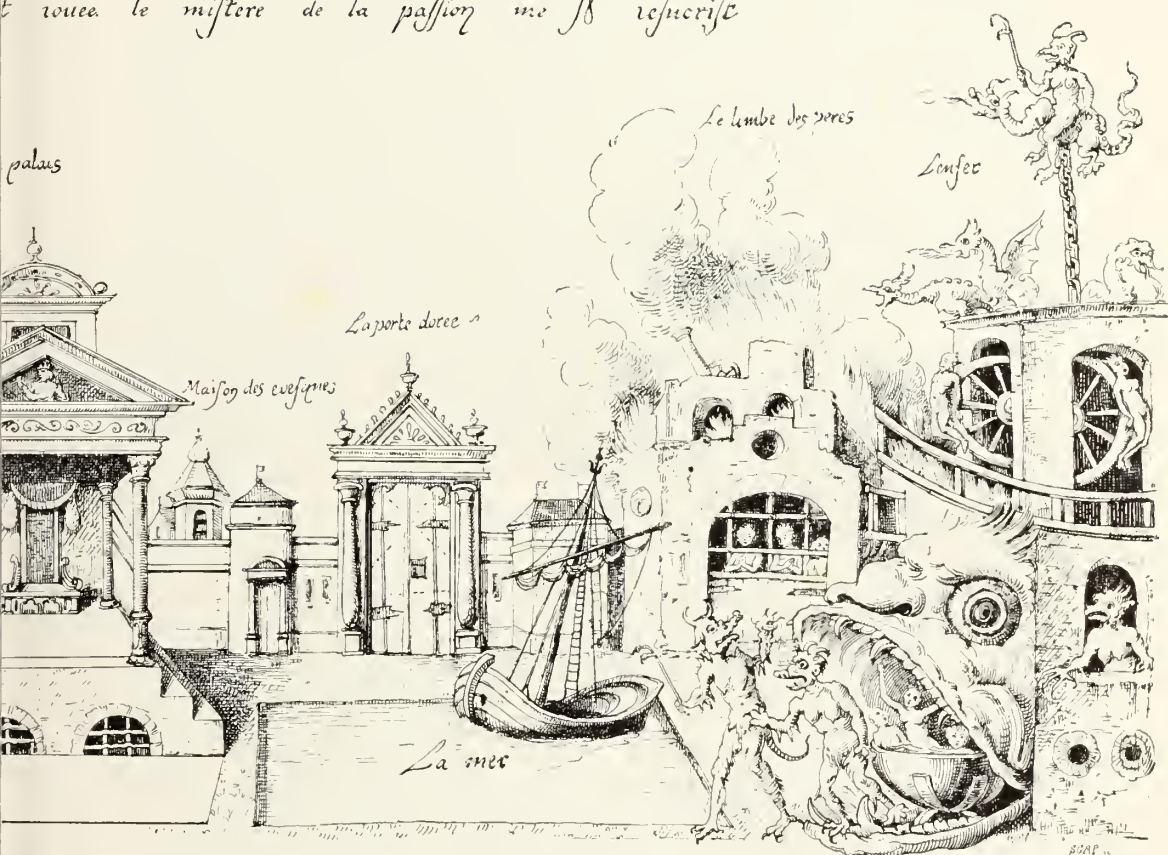 t iouee le mistere de la passion nre Sr iesucrist
Le limbe des peres
palais
Lenfer
La porte doree
Maison des evesques
La mer